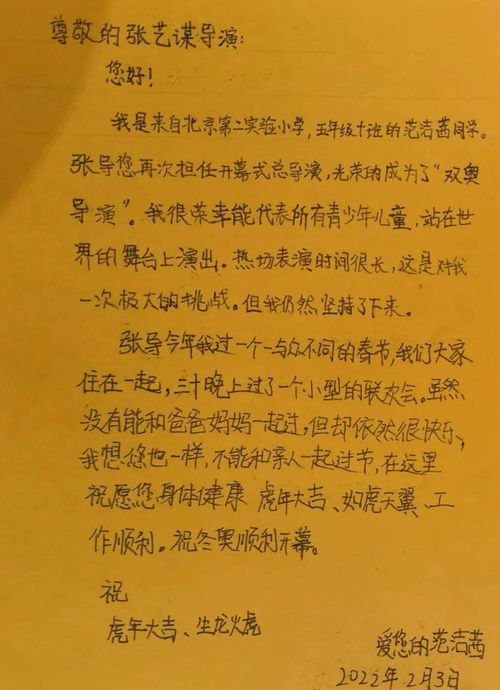 尊敬的张艺谋导演:
您好!
我是来自北京第二实验小学,五年级十班的范洁茜同学。
张导您再次担任开幕式总导演,光荣的成为了"双奥
导演"。我很荣幸能代表所有青少年儿童,站在世
界的舞台上演出。热场表演时间很长,这是对我
一次极大的挑战。但我仍然坚持了下来。
张导今年我过一个与众不同的春节,我们大家
住在一起,三十晚上过了一个小型的联欢会。虽然
没有能和爸爸妈妈一起过,但却依然很快乐、
我想您也一样,不能和亲人一起过节,在这里
祝愿您身体健康 虎年大吉、如虎天翼、工
作顺利。祝冬奥顺利开幕。
祝
虎年大吉、生龙火虎
爱您的范洁茜
2022年2月3日